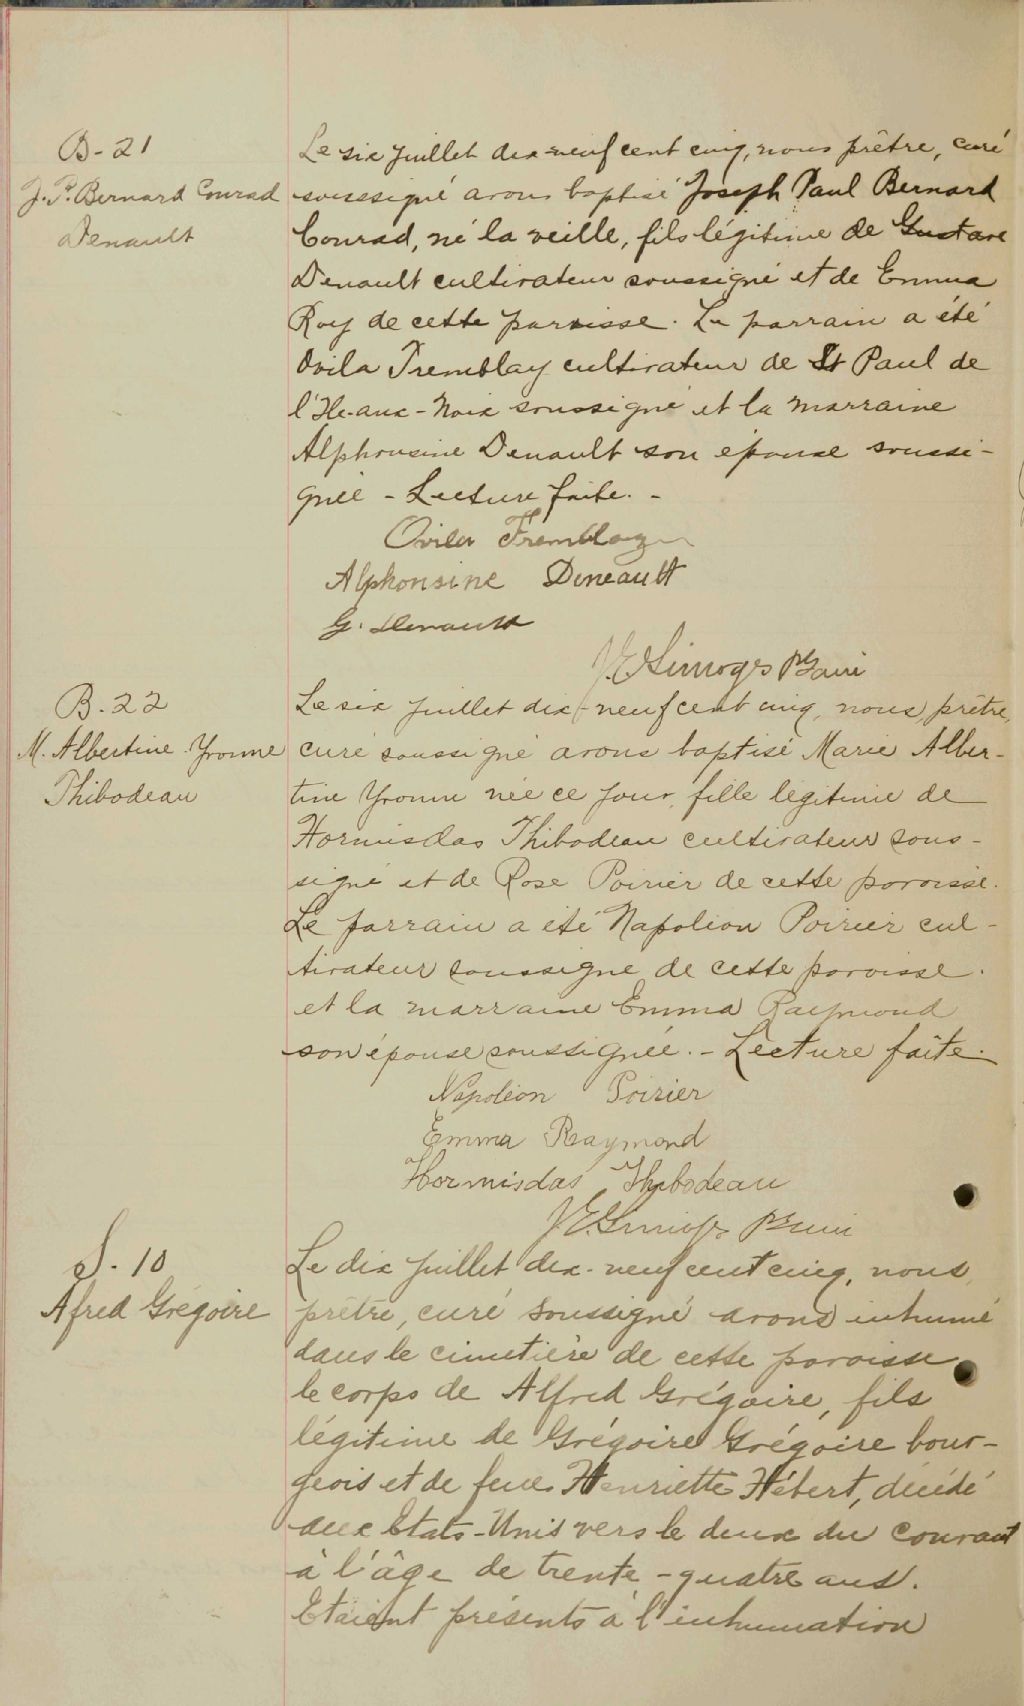 B-21
J. P. Bernard Conrad
Denault
Le six juillet dix-neuf cent cinq, nous prêtre, curé
soussigné avons baptisé Joseph Paul Bernard
Conrad, né la veille, fils légitime de Gustave
Denault cultivateur soussigné et de Emma
Roy de cette paroisse. Le parrain a été
Ovila Tremblay cultivateur de St Paul de
l'Ile-aux-Noix soussigné et la marraine
Alphonsine Denault son épouse soussi-
gnée - Lecture faite. -
Ovila Tremblay
Alphonsine Deneault
G. Denault
J. E. Limoges Ptre Curé
B. 22
M. Albertine Yvonne
Thibodeau
Le six juillet dix-neuf cent cinq, nous, prêtre,
curé soussigné avons baptisé Marie Alber-
tine Yvonne née ce jour, fille légitime de
Hormisdas Thibodeau cultivateur sous-
signé et de Rose Poirier de cette paroisse.
Le parrain a été Napoléon Poirier cul-
tivateur soussigné de cette paroisse.
et la marraine Emma Raymond
son épouse soussignée. - Lecture faite.
Napoléon Poirier
Emma Raymond
Hormisdas Thibodeau
J. E. Limoges Ptre Curé
S. 10
Afred Grégoire
Le dix juillet dix-neuf cent cinq, nous,
prêtre, curé soussigné avons inhumé
dans le cimetière de cette paroisse
le corps de Alfred Grégoire, fils
légitime de Grégoire Grégoire bour-
geois et de feue Henriette Hébert, décédé
aux Etats-Unis vers le deux du courant
à l'âge de trente-quatre ans.
Etaient présents à l'inhumation